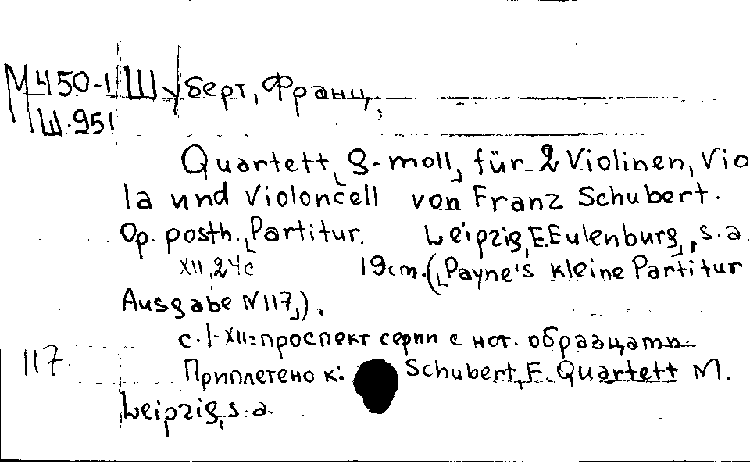 М450-1 Шуберт, Франц,
Ш.951
Quartett, g-moll, für 2 Violinen, Vio
la und Violoncell von Franz Schubert.
Op. posth., Partitur. Leipzig, E. Eulenburg, s.a.
XII, 24с 19cm. (Payne's kleine Partitur
Ausgabe N 117).
с. I-XII: проспект серии с нот. образцами
117 Приплетено к: Schubert, F. Quartett M.
Leipzig, s.a.